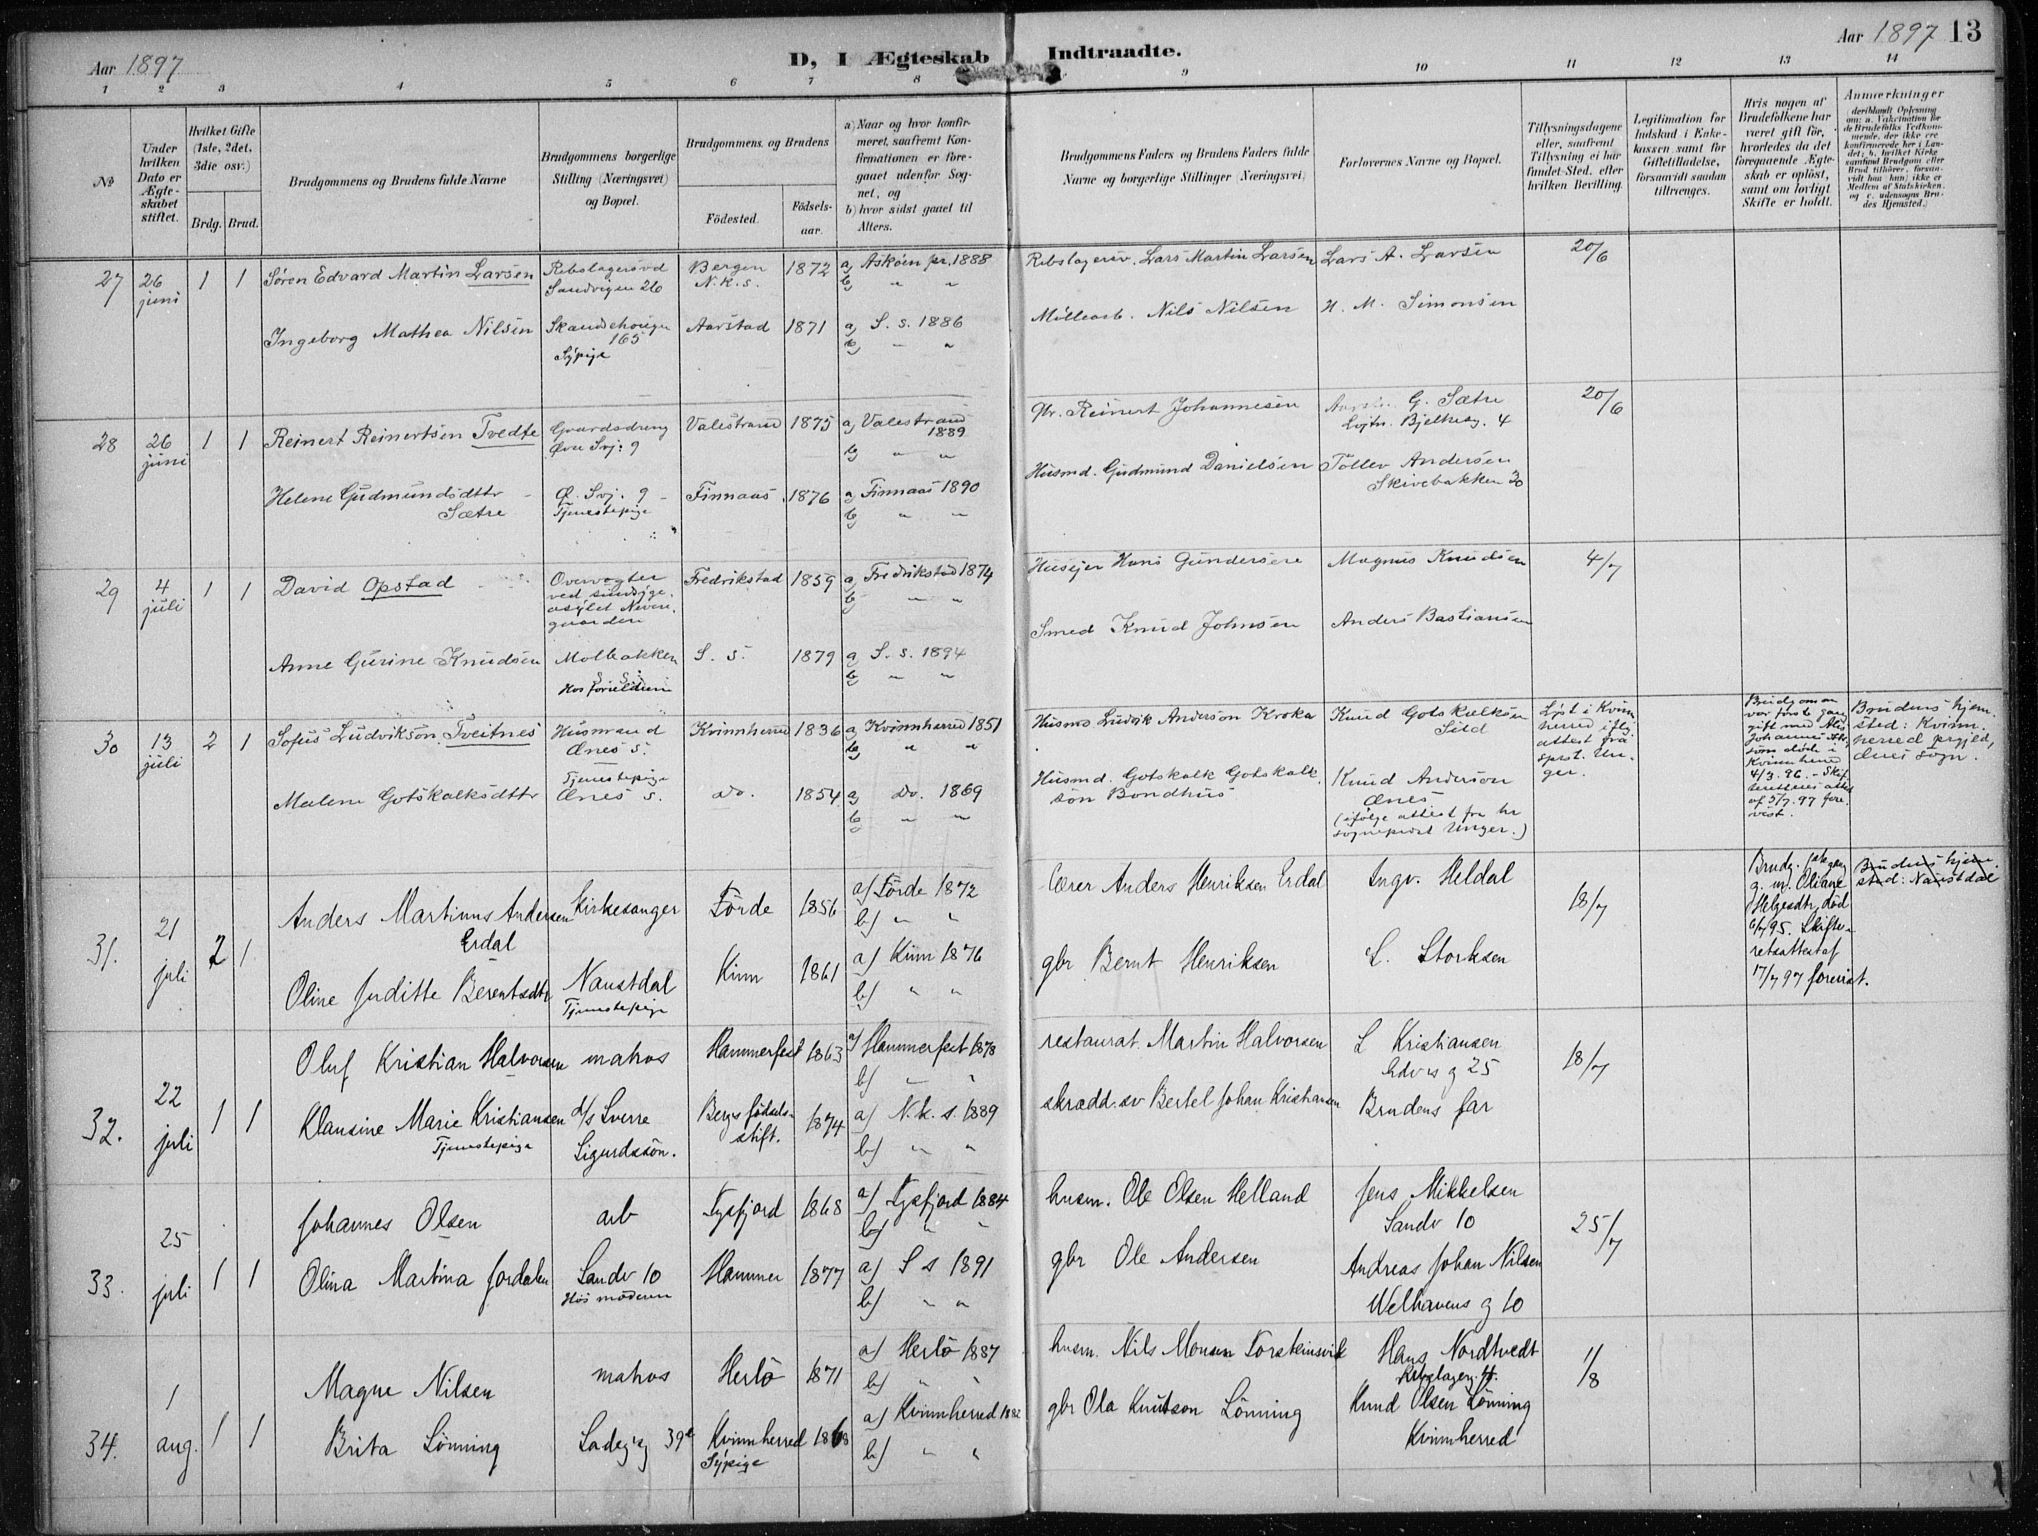 Aar 1897
D, I Ægteskab Indtraadte.
Aar 1897 13
1 2 3 4 5 6 7 8 9 10 11 12 13 14
№
Under hvilken Dato er Ægteskabet stiftet.
Hvilket Gifte (1ste, 2det, 3die osv.)
Brdg. Brud.
Brudgommens og Brudens fulde Navne
Brudgommens borgerlige Stilling (Næringsvei) og Bopæl.
Brudgommens og Brudens
Fødested.
Fødselsaar.
a) Naar og hvor konfirmeret, saafremt Konfirmationen er foregaaet udenfor Sognet, og
b) hvor sidst gaaet til Alters.
Brudgommens Faders og Brudens Faders fulde Navne og borgerlige Stillinger (Næringsvei)
Forlovernes Navne og Bopæl.
Tillysningsdagene eller, saafremt Tillysning ei har fundet Sted, efter hvilken Bevilling.
Legitimation for Indskud i Enkekassen samt for Giftetilladelse, forsaavidt saadan tiltrænges.
Hvis nogen af Brudefolkene har været gift før, hvorledes da det foregaaende Ægteskab er opløst, samt om lovligt Skifte er holdt.
Anmærkninger
deriblandt Oplysning om: a. Vakcination for de Brudefolks Vedkommende, der ikke ere konfirmerede her i Landet; b. hvilket Kirkesamfund Brudgom eller Brud tilhører, forsaavidt han (hun) ikke er Medlem af Statskirken, og c. udensogns Brudes Hjemsted.)
27 26 juni 1 1 Søren Edvard Martin Larsen
Rebslagersvd Sandvigen 26
Bergen N.k.s. 1872 a) Askøen pr. 1888
b) " "
Rebslagersv. Lars Martin Larsen
Lars A. Larsen
20/6
Ingeborg Mathea Nilsen
Skandsehougen 165
Sypige
Aarstad 1871 a) S. s. 1886
b) " "
Møllearb. Nils Nilsen
H. M. Simonsen
28 26 juni 1 1 Reinert Reinertsen Tvedte
Gaardsdreng Øvre Svj: 9
Valestrand 1875 a) Valestrand 1889
b) " "
Gbr. Reinert Johannesen
G. Sætre
Bjelkesg. 4
20/6
Helene Gudmundsdttr Sætre
Ø. Svj. 9
Tjenestepige
Finnaas 1876 a) Finnaas 1890
b) " "
Husmd. Gudmund Danielsen
Tollev Andersen
Skivebakken 20
29 4 juli 1 1 David Opstad
Overvogter ved sindsyge asylet Neven gaarden
Fredrikstad 1859 a) Fredrikstad 1874
b) " "
Husejer Hans Gundersen
Magnus Knudsen
4/7
Anne Gurine Knudsen
Møllbakken
Hos forældrene
S. s. 1879 a) S. s. 1894
b) " "
Smed Knud Johnsen
Anders Bastiansen
30 13 juli 2 1 Sofus Ludvikson Tveitnes
Husmand Ænes s.
Kvinnherred 1836 a) Kvinnherred 1851
b) " "
Husmd Ludvik Anderson Kroka
Knud Gotskalksen Sild
Lyst i Kvinnherred iflg. attest fra sprst. Unger.
Brudgommen var første gang gift med Johannesdttr som døde i Kvinnherred 4/3. 96. - Skifterettens attest af 5/7. 97 forevist.
Brudens hjemsted: Kvinnherred prgjeld, Ænes sogn.
Malene Gotskalksdttr
Tjenestepige Ænes s.
do. 1854 a) do. 1869
b) " "
Husmd. Gotskalk Gotskalkson Bondhus
Knud Anderson Ænes
(ifølge attest fra hr sogneprest Unger.)
31. 21 juli 2 1 Anders Martinus Andersen Erdal
Kirkesanger
Förde 1856 a) Förde 1872
b) " "
lærer Anders Henriksen Erdal
Ingv. Heldal
18/7
Brudg. g. m. Oliane Helgesdtr, død 6/7 95. Skifteretsattest af 17/7 97 forevist.
Brudens hjemsted: Naustdal
Oline Juditte Berentsdtr
Naustdal
Tjenestepige
Kinn 1861 a) Kinn 1876
b) " "
gbr Bernt Henriksen
L. Storksen
32. 22 juli 1 1 Oluf Kristian Halvorsen
matros
Hammerfest 1863 a) Hammerfest 1878
b) " "
restaurat. Martin Halvorsen
L Kristiansen
Edvs g 25
18/7
Klausine Marie Kristiansen
Tjenestepige
d/s Sverre Sigurdssön.
Bergs fødselsstift. 1874 a) N.k. s. 1889
b) " "
skrædd.sv Bertel Johan Kristiansen
Brudens far
33. 25 juli 1 1 Johannes Olsen
arb
Tysfjord 1868 a) Tysfjord 1884
b) " "
husm. Ole Olsen Helland
Jens Mikkelsen
Sandv 10
25/7
Olina Martina Jordalen
Sandv 10
Hos moderen
Hammer 1877 a) S s 1891
b) " "
gbr Ole Andersen
Andreas Johan Nilsen
Welhavens g 10
34. 1 aug. 1 1 Magne Nilsen
matros
Herlö 1871 a) Herlö 1887
b) " "
husm. Nils Monsen Torsteinsvik
Hans Nordtvedt
1/8
Brita Lönning
Ladeg.g 39
Kvinnherred 1868
Sypige
a) Kvinnherred 1882
b) " "
gbr Ola Knutson Lönning
Knud Olsen Lönning
Kvinnherred